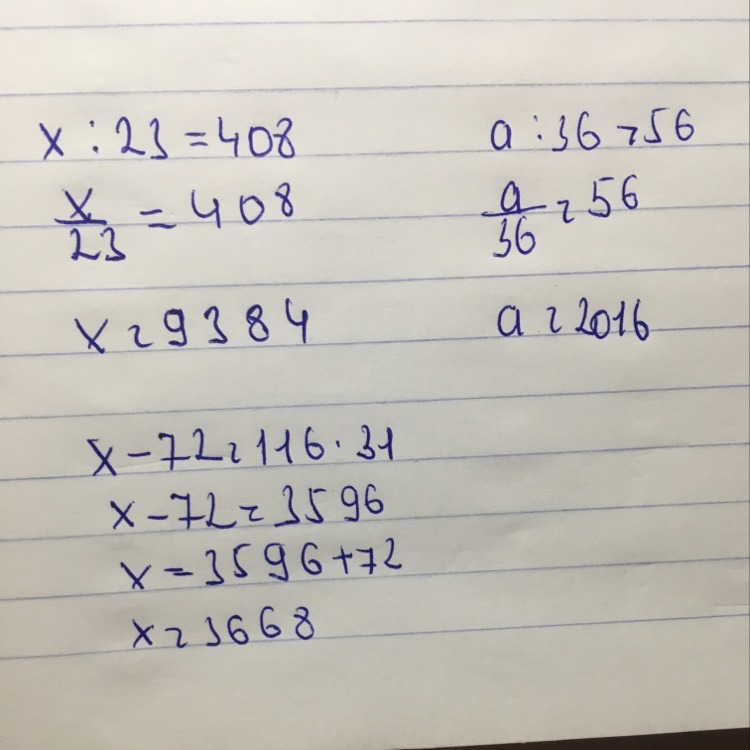 x : 23 = 408
x/23 = 408
x = 9384
a : 36 = 56
a/36 = 56
a = 2016
x - 72 = 116 · 31
x - 72 = 3596
x = 3596 + 72
x = 3668